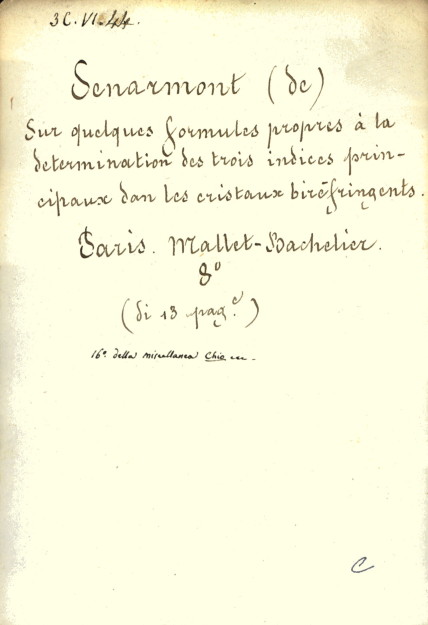 3 C. VI. 44.
Senarmont (de)
Sur quelques formules propres à la
determination des trois indices prin-
cipaux dan les cristaux biréfringents.
Paris. Mallet-Bachelier.
8°
(di 13 pag.e)
16a della miscellanea
C